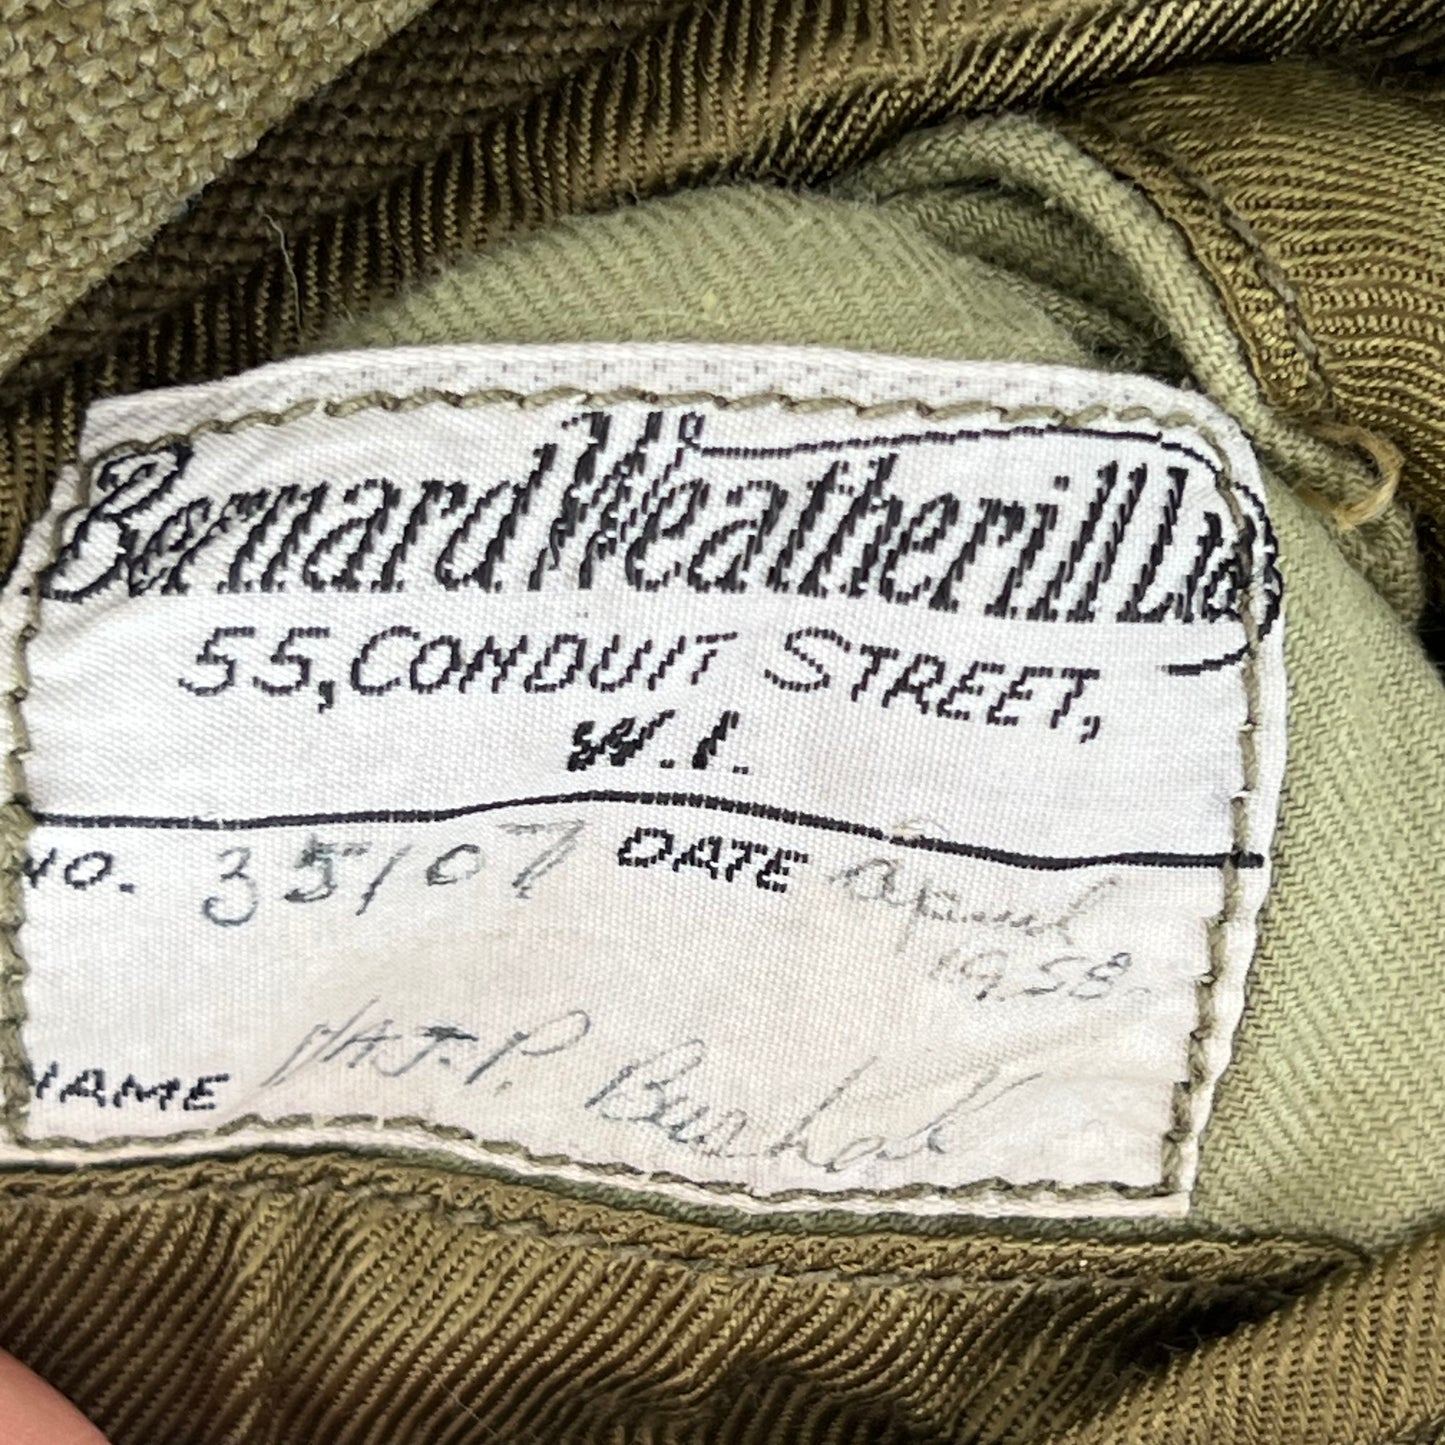 Bernard Weatherill Ltd
55, CONDUIT STREET,
W.1.
NO. 35107 DATE April
1958.
NAME J. P.